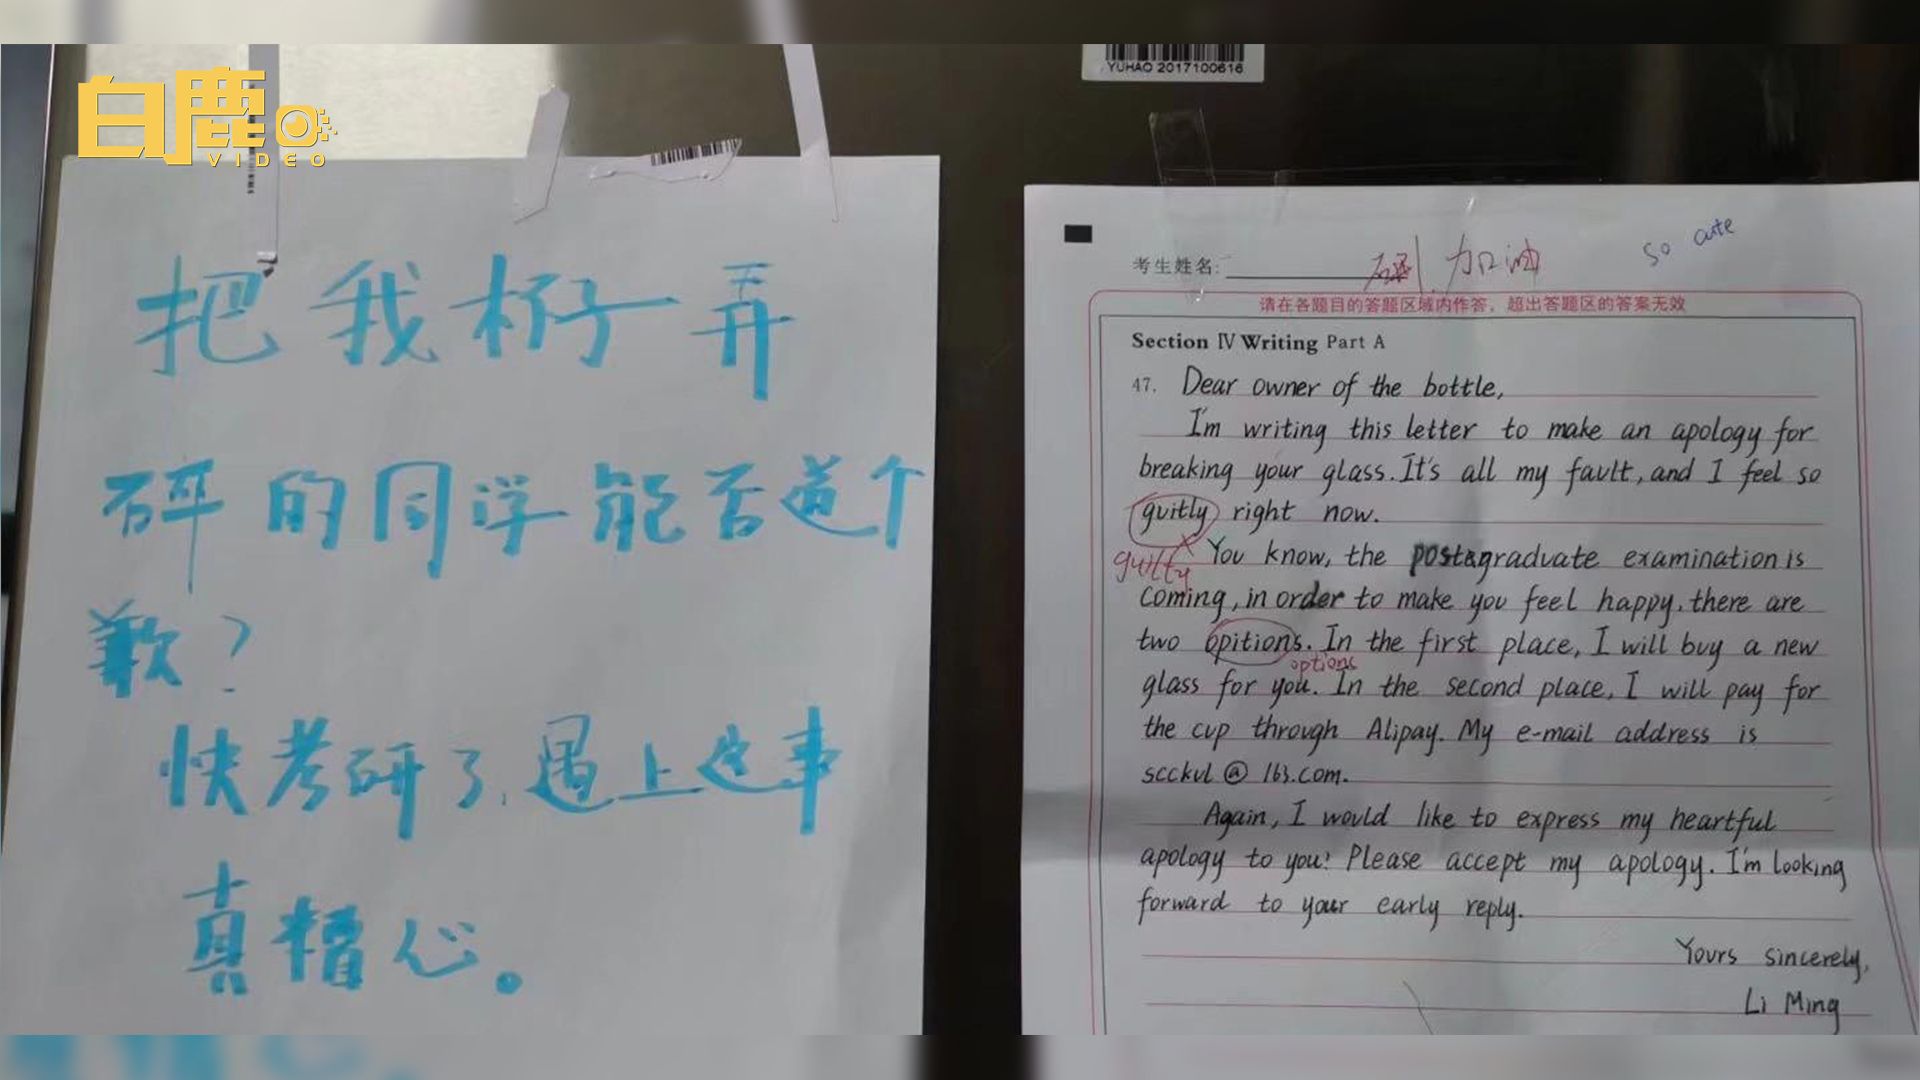 白鹿
VIDEO
YUHAO 2017100616
把我杯子弄
碎的同学能否道个
歉？
快考研了，遇上这事
真糟心。
考生姓名：
加油
so cute
请在各题目的答题区域内作答，超出答题区的答案无效
Section Ⅳ Writing Part A
47. Dear owner of the bottle,
I'm writing this letter to make an apology for
breaking your glass. It's all my fault, and I feel so
guitly right now.
guilty
You know, the postgraduate examination is
coming, in order to make you feel happy, there are
two opitions. In the first place, I will buy a new
options
glass for you. In the second place, I will pay for
the cup through Alipay. My e-mail address is
scckvl @ 163.com.
Again, I would like to express my heartful
apology to you! Please accept my apology. I'm looking
forward to your early reply.
Yours sincerely,
Li Ming